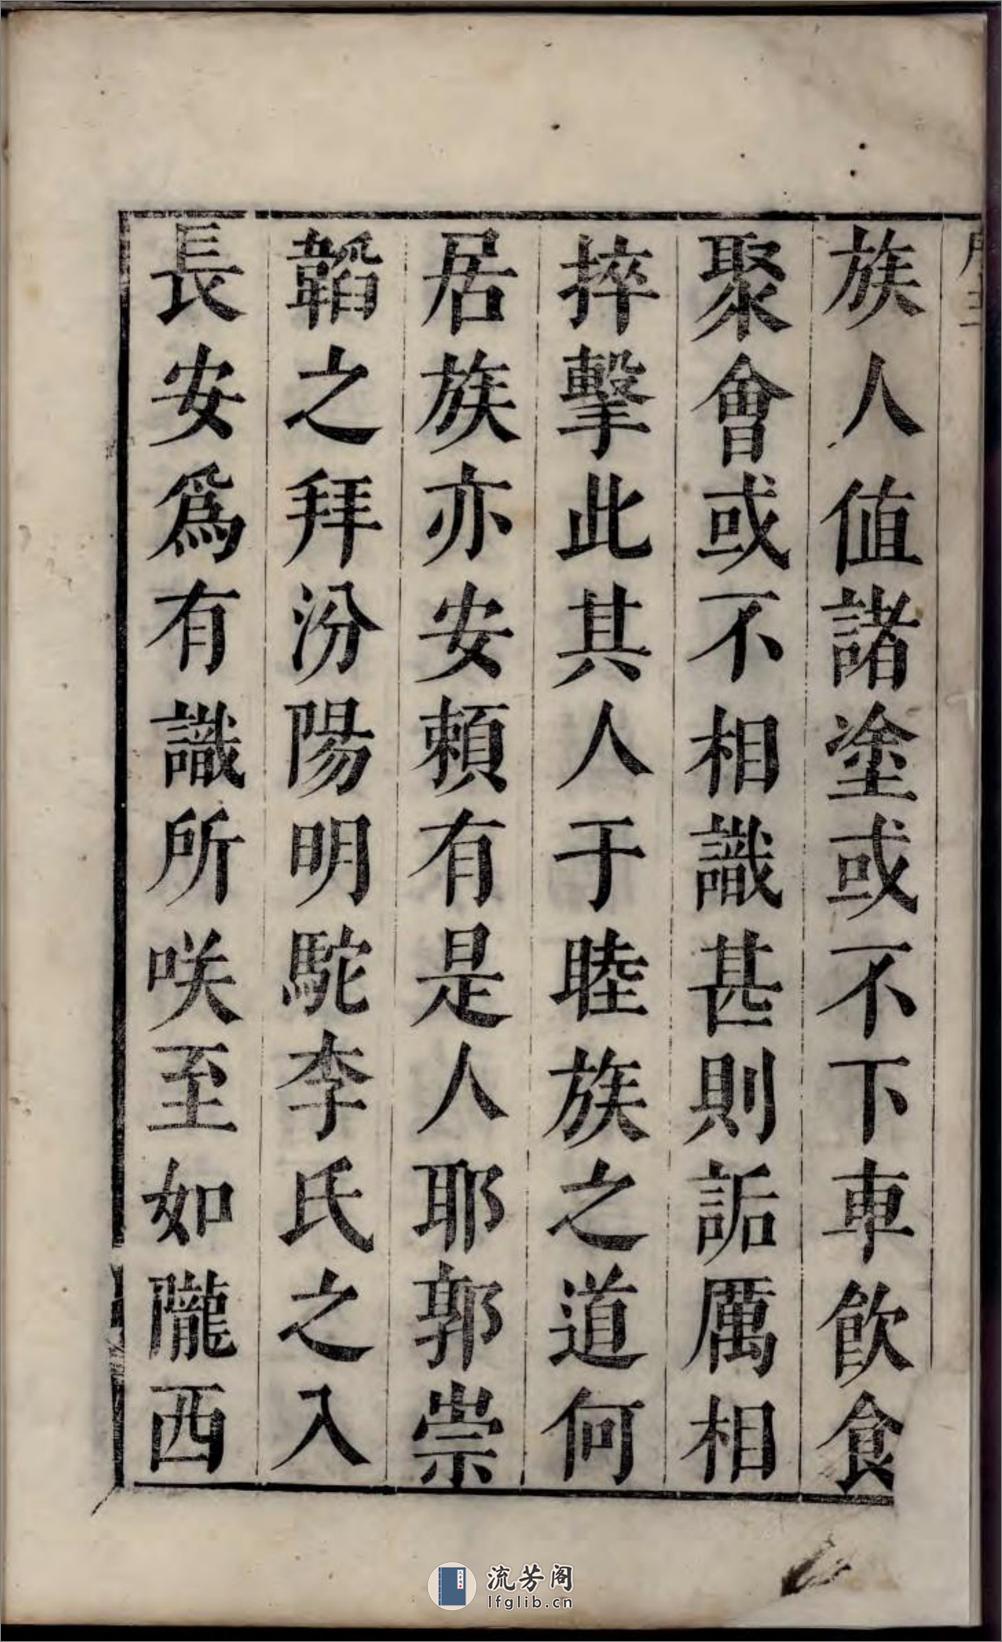 族人値諸塗或不下車飲食
聚會或不相識甚則詬厲相
捽擊此其人于睦族之道何
居族亦安頼有是人耶郭崇
韜之拜汾陽明駝李氏之入
長安爲有識所咲至如隴西
流芳阁
lfglib.cn